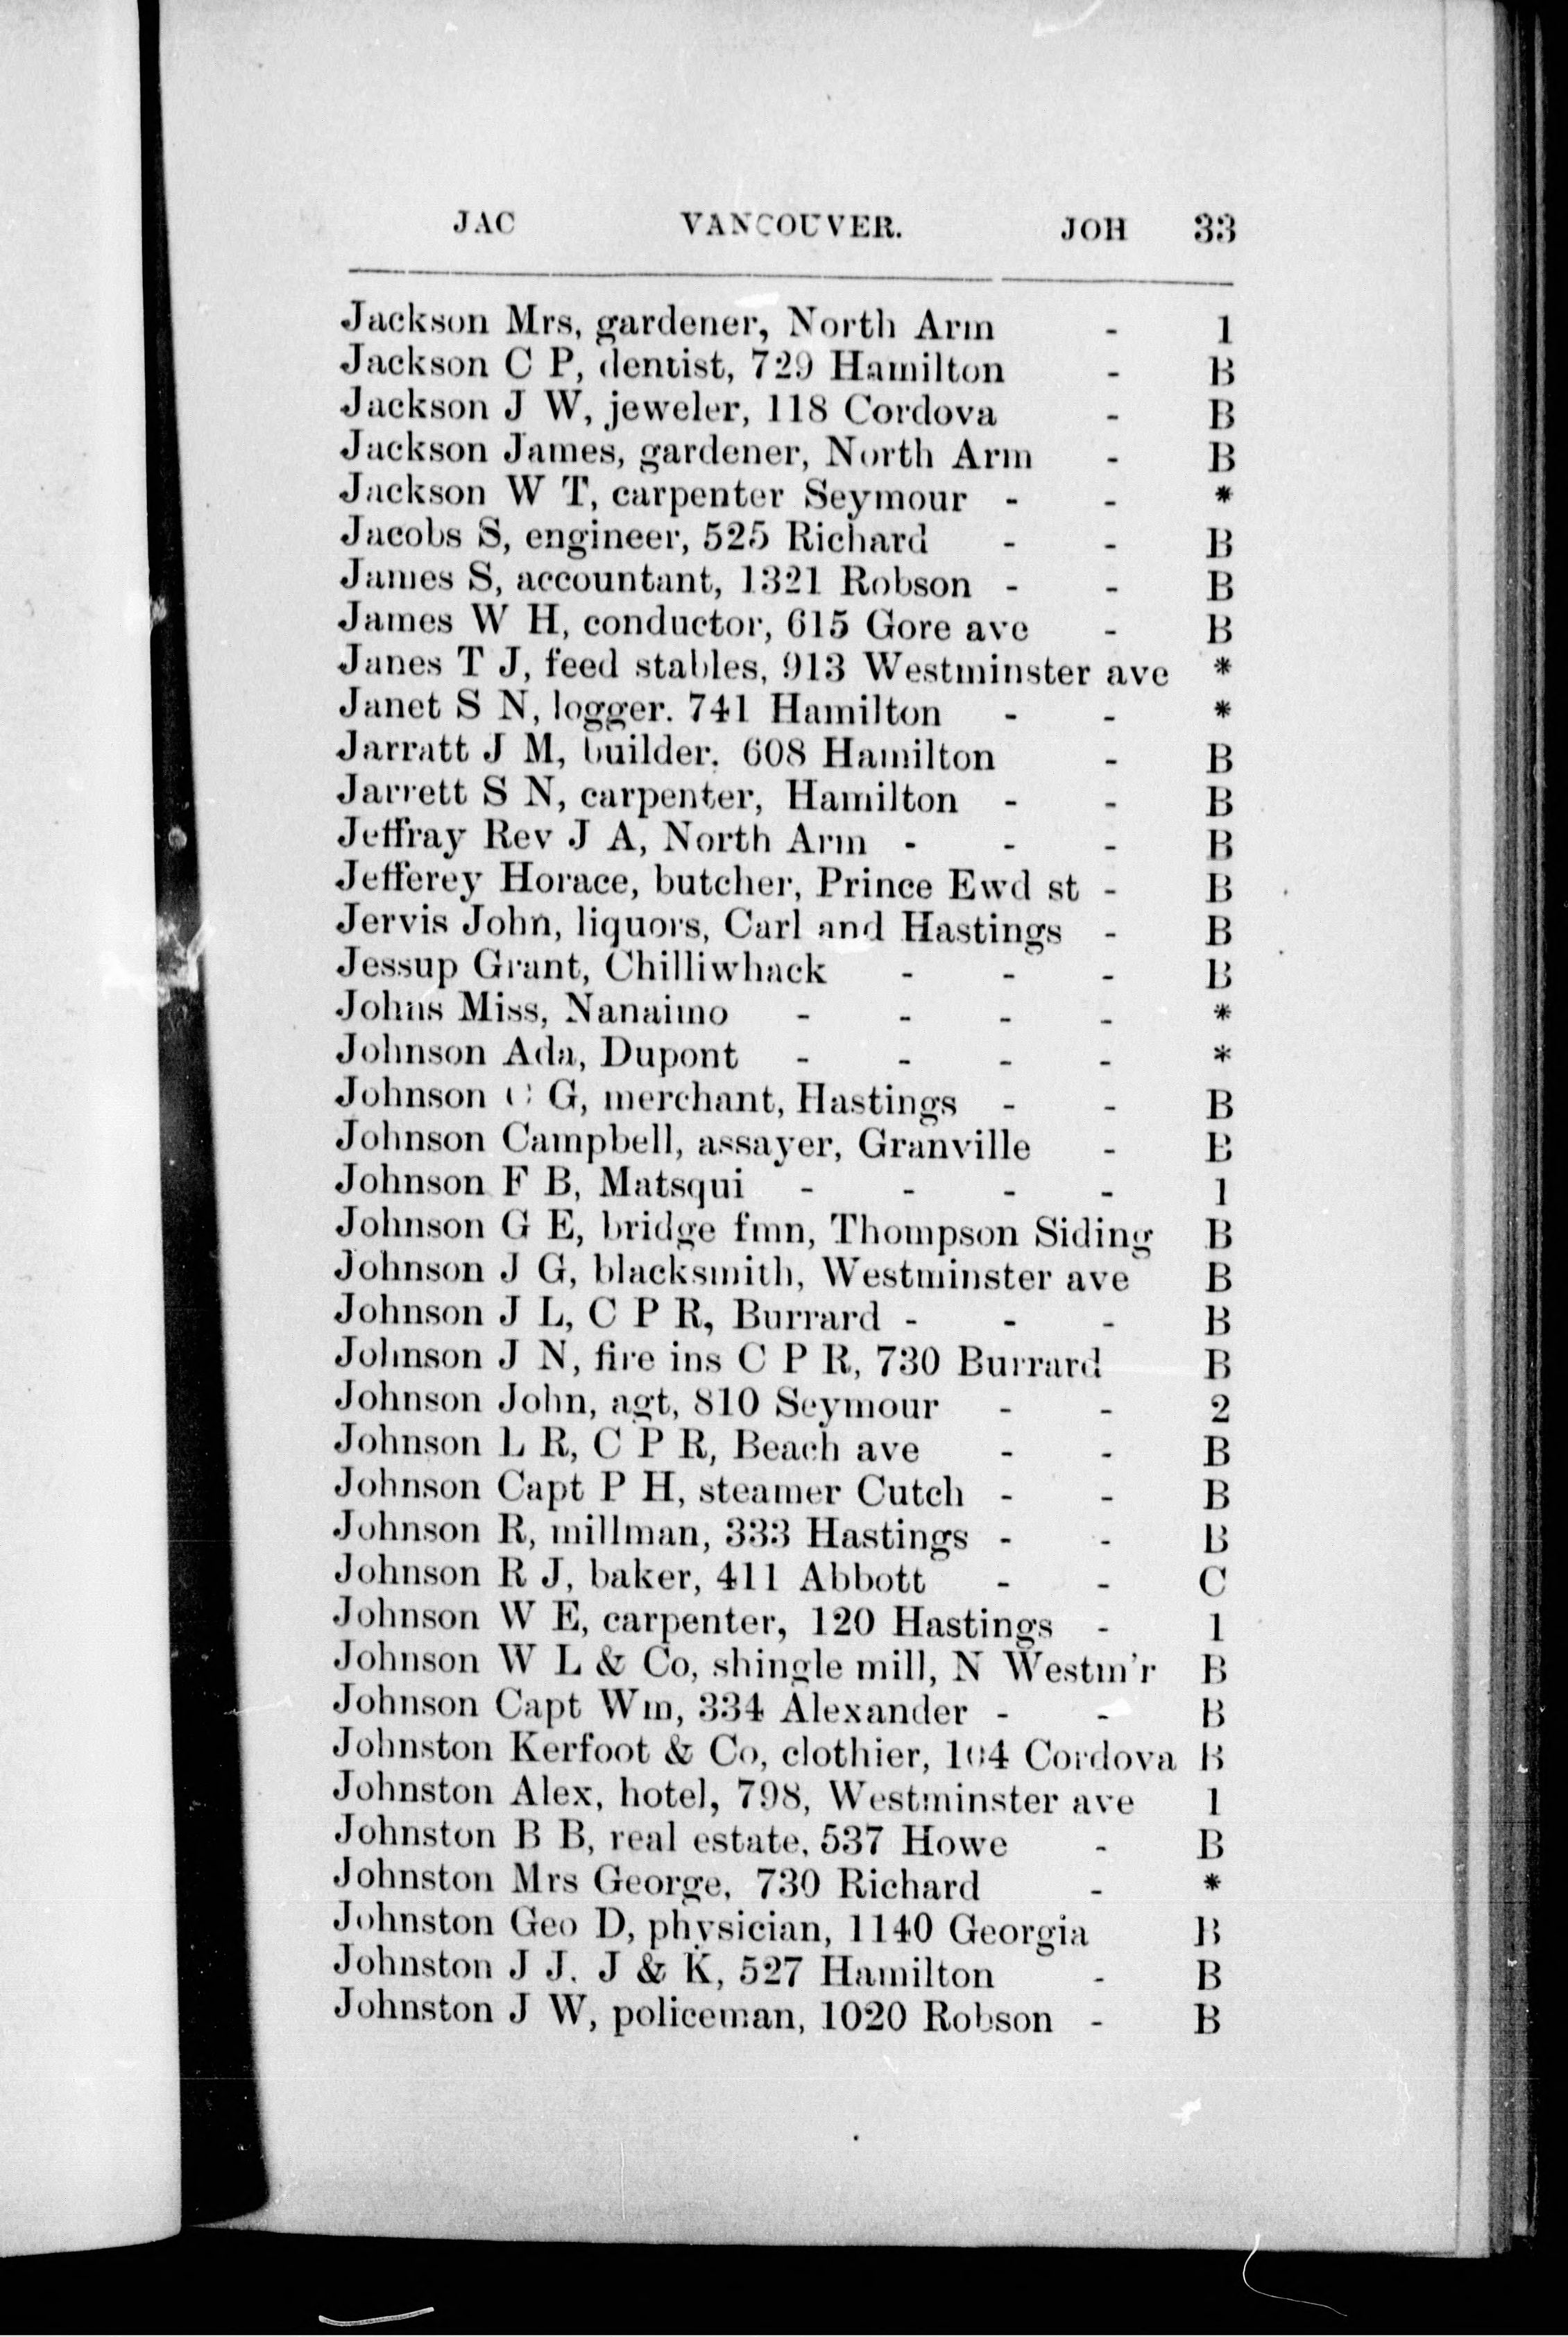 JAC VANCOUVER. JOH 33
Jackson Mrs, gardener, North Arm - 1
Jackson C P, dentist, 729 Hamilton - B
Jackson J W, jeweler, 118 Cordova - B
Jackson James, gardener, North Arm - B
Jackson W T, carpenter Seymour - - *
Jacobs S, engineer, 525 Richard - - B
James S, accountant, 1321 Robson - - B
James W H, conductor, 615 Gore ave - B
Janes T J, feed stables, 913 Westminster ave *
Janet S N, logger. 741 Hamilton - - *
Jarratt J M, builder. 608 Hamilton - B
Jarrett S N, carpenter, Hamilton - - B
Jeffray Rev J A, North Arm - - - B
Jefferey Horace, butcher, Prince Ewd st - B
Jervis John, liquors, Carl and Hastings - B
Jessup Grant, Chilliwhack - - - B
Johns Miss, Nanaimo - - - - *
Johnson Ada, Dupont - - - - *
Johnson C G, merchant, Hastings - - B
Johnson Campbell, assayer, Granville - B
Johnson F B, Matsqui - - - - 1
Johnson G E, bridge fmn, Thompson Siding B
Johnson J G, blacksmith, Westminster ave B
Johnson J L, C P R, Burrard - - - B
Johnson J N, fire ins C P R, 730 Burrard B
Johnson John, agt, 810 Seymour - - 2
Johnson L R, C P R, Beach ave - - B
Johnson Capt P H, steamer Cutch - - B
Johnson R, millman, 333 Hastings - - B
Johnson R J, baker, 411 Abbott - - C
Johnson W E, carpenter, 120 Hastings - 1
Johnson W L & Co, shingle mill, N Westm'r B
Johnson Capt Wm, 334 Alexander - - B
Johnston Kerfoot & Co, clothier, 104 Cordova B
Johnston Alex, hotel, 798, Westminster ave 1
Johnston B B, real estate, 537 Howe - B
Johnston Mrs George, 730 Richard - *
Johnston Geo D, physician, 1140 Georgia B
Johnston J J. J & K, 527 Hamilton - B
Johnston J W, policeman, 1020 Robson - B